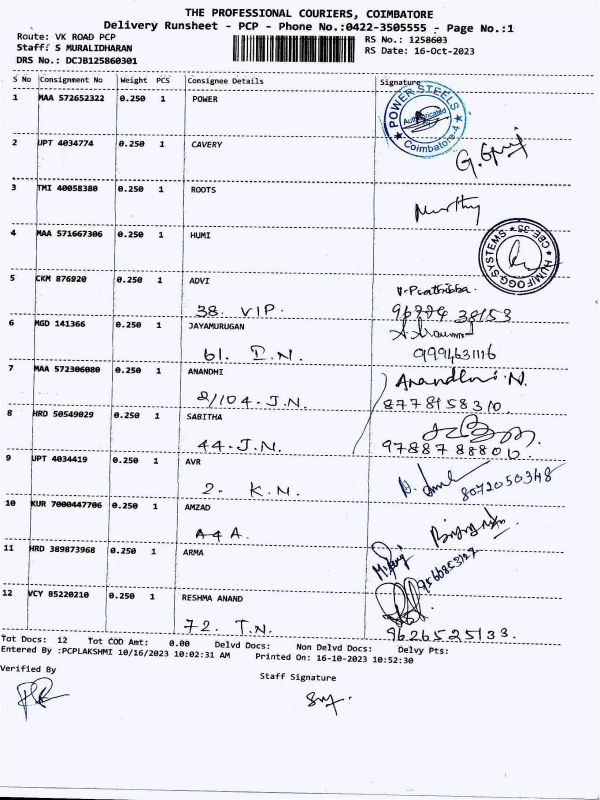 THE PROFESSIONAL COURIERS, COIMBATORE
Delivery Runsheet - PCP - Phone No.:0422-3505555 - Page No.:1
Route: VK ROAD PCP RS No.: 1258603
Staff: S MURALIDHARAN RS Date: 16-Oct-2023
DRS No.: DCJB125860301
S No Consignment No Weight PCS Consignee Details Signature
1 MAA 572652322 0.250 1 POWER
POWER STEELS
Authenticated
Coimbatore-4
2 UPT 4034774 0.250 1 CAVERY
3 TMI 40058380 0.250 1 ROOTS
Murthy
4 MAA 571667306 0.250 1 HUMI
HUMIFOGG SYSTEMS CBE-35
5 CKM 876920 0.250 1 ADVI
38. VIP.
6 MGD 141366 0.250 1 JAYAMURUGAN
61. D.N. 9994631116
7 MAA 572306080 0.250 1 ANANDHI Anandhi N.
2/104-J.N. 8778158310.
8 HRD 50549029 0.250 1 SABITHA
44-J.N. 9788788800
9 UPT 4034419 0.250 1 AVR
2. K.N. 8072050348
10 KUR 7000447706 0.250 1 AMZAD
A4A.
11 HRD 389873968 0.250 1 ARMA
12 VCY 85220210 0.250 1 RESHMA ANAND
72. T.N. 9626525133.
Tot Docs: 12 Tot COD Amt: 0.00 Delvd Docs: Non Delvd Docs: Delvy Pts:
Entered By :PCPLAKSHMI 10/16/2023 10:02:31 AM Printed On: 16-10-2023 10:52:30
Verified By Staff Signature